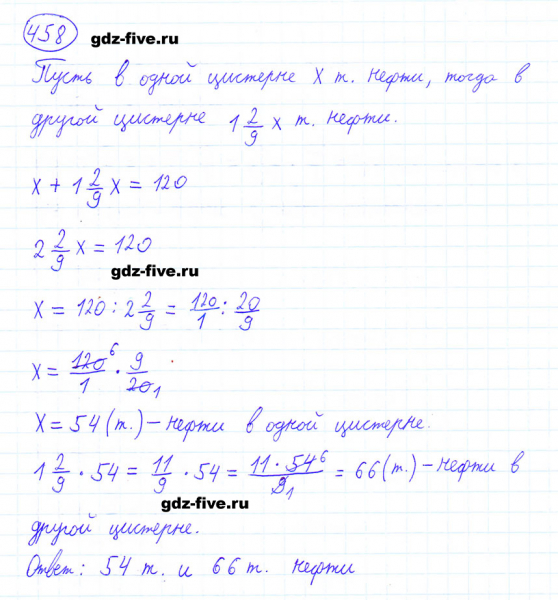 458 gdz-five.ru
Пусть в одной цистерне x т. нефти, тогда в
другой цистерне 1 2/9 x т. нефти.
x + 1 2/9 x = 120
2 2/9 x = 120
gdz-five.ru
x = 120 : 2 2/9 = 120/1 : 20/9
x = 120 6/1 · 9/20 1
x = 54 (т.) – нефти в одной цистерне.
1 2/9 · 54 = 11/9 · 54 = 11 · 54 6/9 1 = 66 (т.) – нефти в
gdz-five.ru
другой цистерне.
Ответ: 54 т. и 66 т. нефти